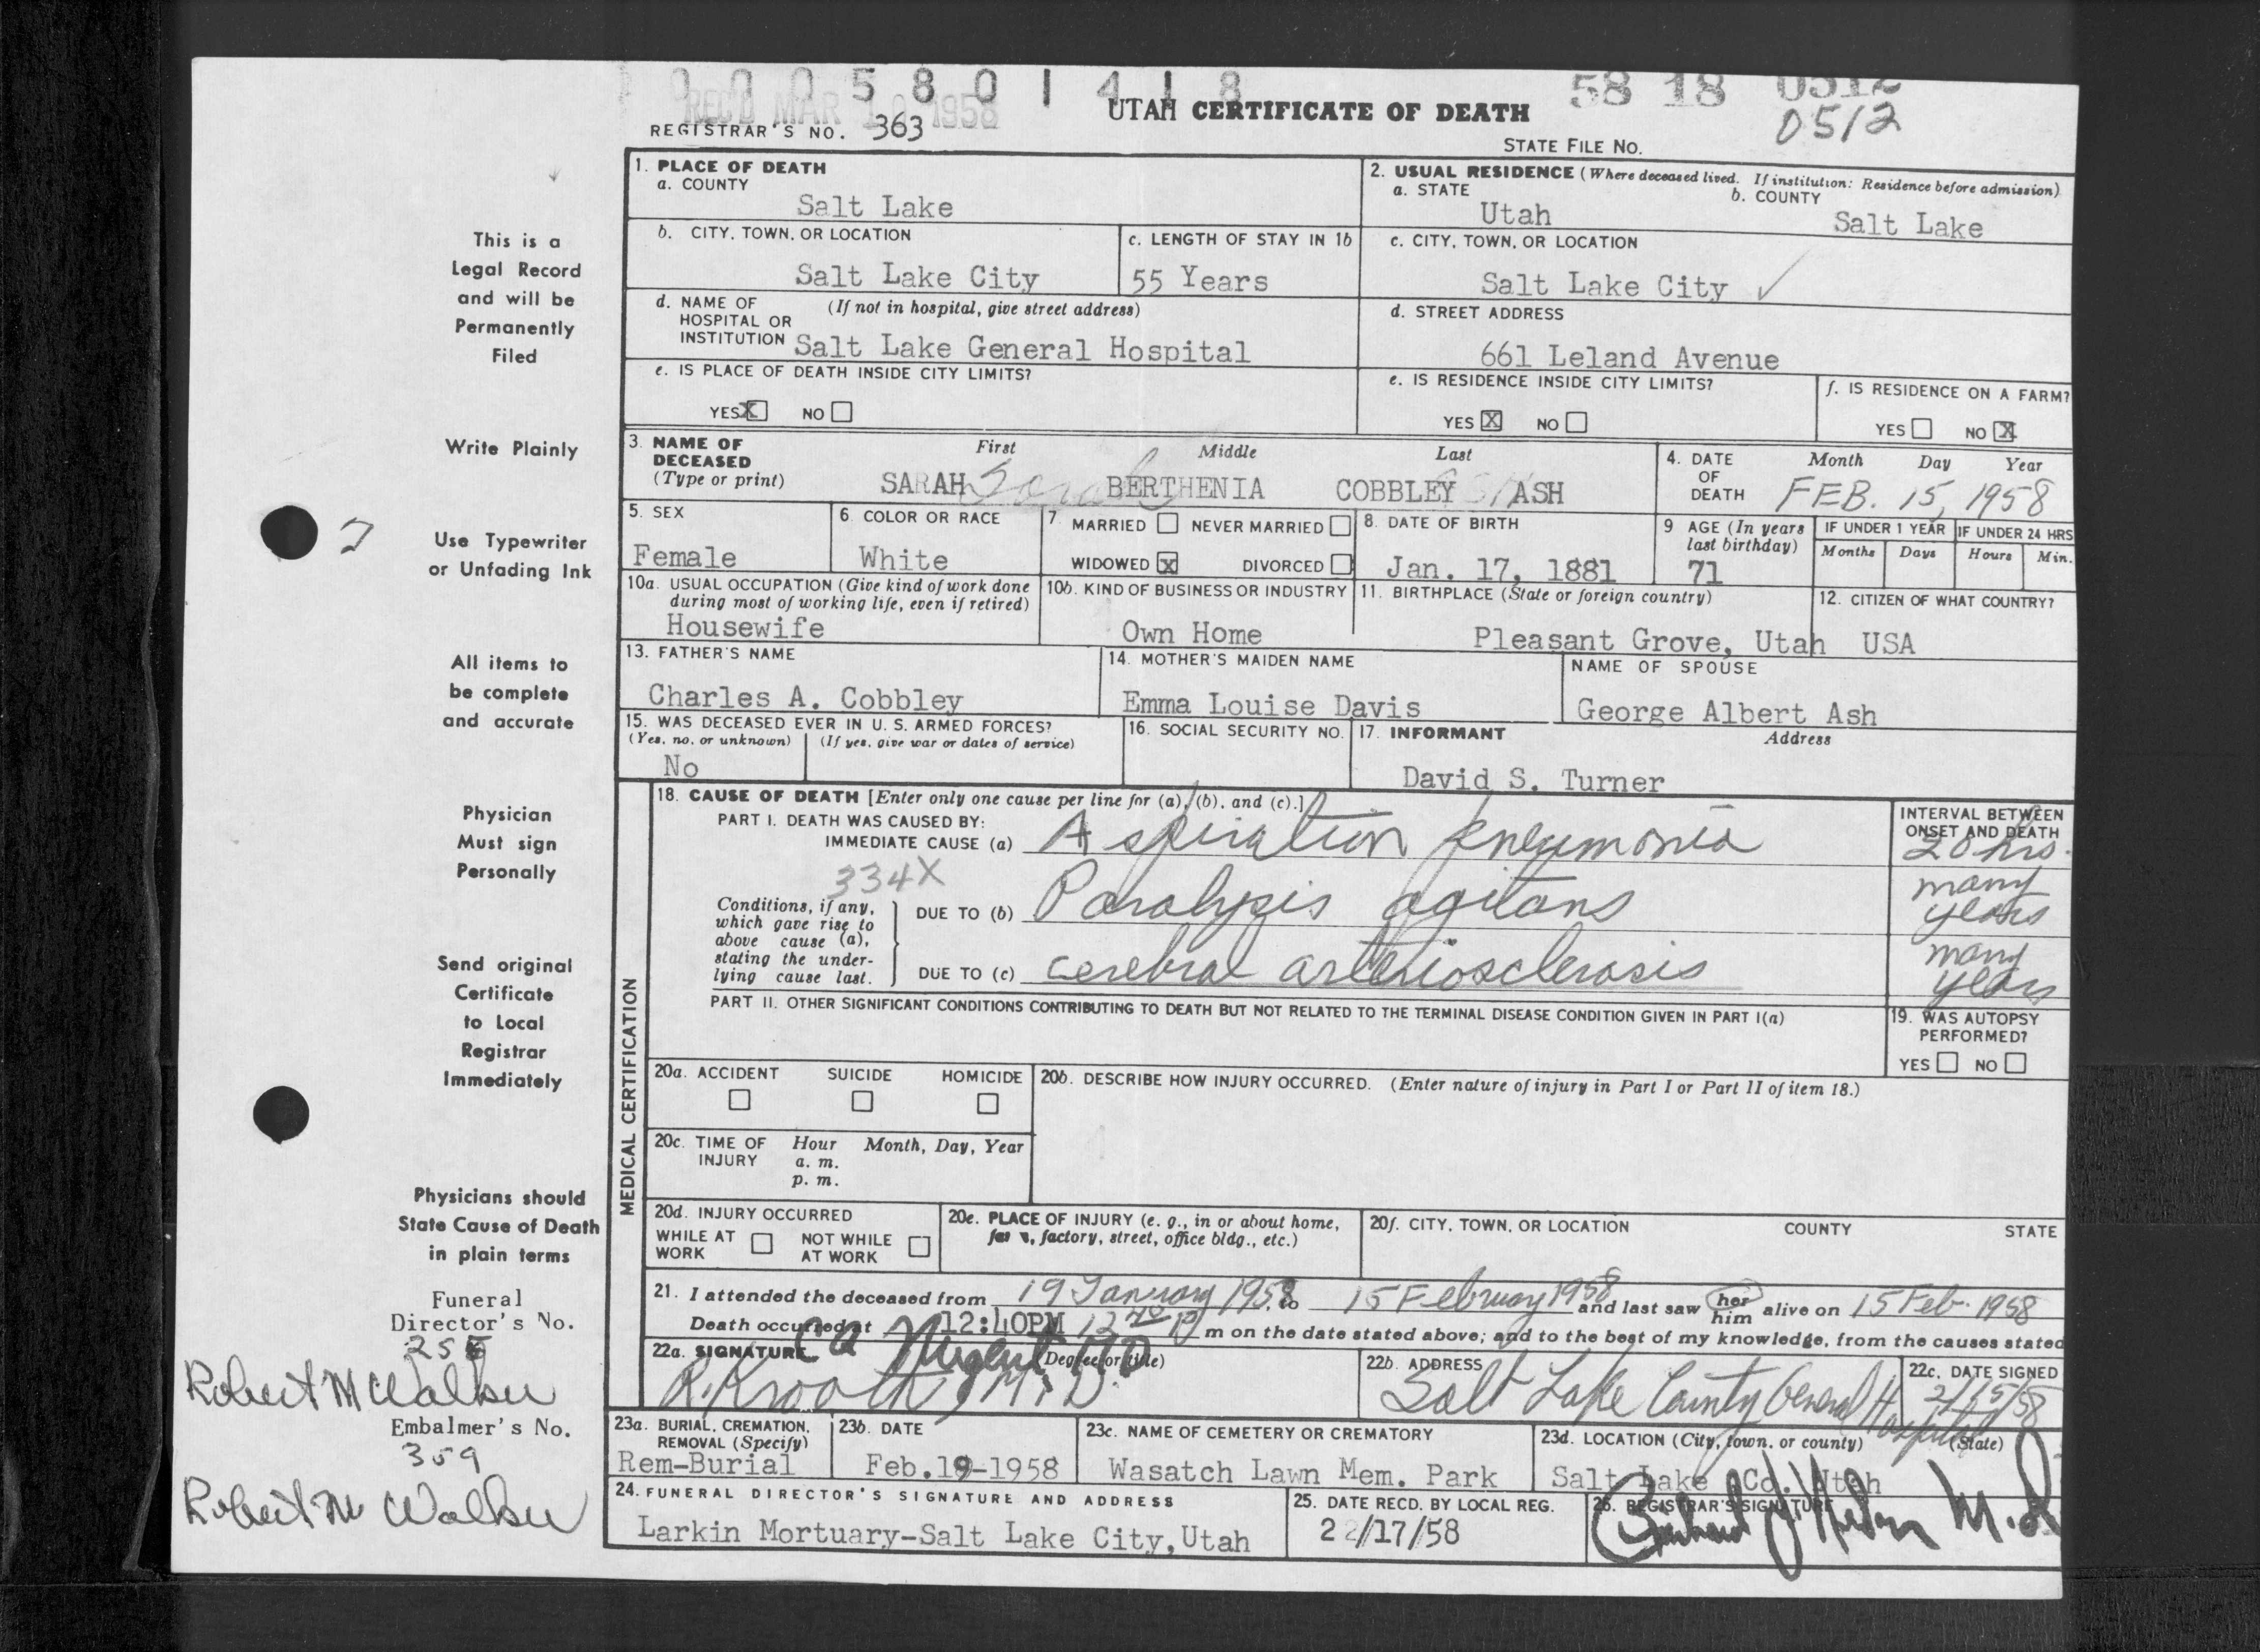 0 0 0 5 8 0 1 4 1 8
58 18 0512
REC'D MAR 1 0 1958
UTAH CERTIFICATE OF DEATH
0512
REGISTRAR'S NO. 363
STATE FILE NO.
This is a
Legal Record
and will be
Permanently
Filed
Write Plainly
Use Typewriter
or Unfading Ink
All items to
be complete
and accurate
Physician
Must sign
Personally
Send original
Certificate
to Local
Registrar
Immediately
Physicians should
State Cause of Death
in plain terms
Funeral
Director's No.
Robert M Walker
Embalmer's No.
359
Robert M Walker
1. PLACE OF DEATH
a. COUNTY
Salt Lake
2. USUAL RESIDENCE (Where deceased lived. If institution: Residence before admission)
a. STATE
b. COUNTY
Utah
Salt Lake
b. CITY, TOWN, OR LOCATION
Salt Lake City
c. LENGTH OF STAY IN 1b
55 Years
c. CITY, TOWN, OR LOCATION
Salt Lake City ✓
d. NAME OF (If not in hospital, give street address)
HOSPITAL OR
INSTITUTION Salt Lake General Hospital
d. STREET ADDRESS
661 Leland Avenue
e. IS PLACE OF DEATH INSIDE CITY LIMITS?
YES X NO
e. IS RESIDENCE INSIDE CITY LIMITS?
YES X NO
f. IS RESIDENCE ON A FARM?
YES NO X
3. NAME OF
DECEASED
(Type or print)
First Middle Last
SARAH Sarah BERTHENIA COBBLEY ASH
4. DATE
OF
DEATH
Month Day Year
FEB. 15, 1958
5. SEX
Female
6. COLOR OR RACE
White
7. MARRIED NEVER MARRIED
WIDOWED X DIVORCED
8. DATE OF BIRTH
Jan. 17, 1881
9 AGE (In years
last birthday)
71
IF UNDER 1 YEAR
Months Days
IF UNDER 24 HRS
Hours Min.
10a. USUAL OCCUPATION (Give kind of work done
during most of working life, even if retired)
Housewife
10b. KIND OF BUSINESS OR INDUSTRY
Own Home
11. BIRTHPLACE (State or foreign country)
Pleasant Grove, Utah
12. CITIZEN OF WHAT COUNTRY?
USA
13. FATHER'S NAME
Charles A. Cobbley
14. MOTHER'S MAIDEN NAME
Emma Louise Davis
NAME OF SPOUSE
George Albert Ash
15. WAS DECEASED EVER IN U. S. ARMED FORCES?
(Yes, no, or unknown) (If yes, give war or dates of service)
No
16. SOCIAL SECURITY NO.
17. INFORMANT Address
David S. Turner
MEDICAL CERTIFICATION
18. CAUSE OF DEATH [Enter only one cause per line for (a), (b), and (c).]
PART I. DEATH WAS CAUSED BY:
IMMEDIATE CAUSE (a) Aspiration pneumonia
INTERVAL BETWEEN
ONSET AND DEATH
20 hrs.
334X
Conditions, if any,
which gave rise to
above cause (a),
stating the under-
lying cause last.
DUE TO (b) Paralysis agitans
many
years
DUE TO (c) cerebral arteriosclerosis
many
years
PART II. OTHER SIGNIFICANT CONDITIONS CONTRIBUTING TO DEATH BUT NOT RELATED TO THE TERMINAL DISEASE CONDITION GIVEN IN PART I(a)
19. WAS AUTOPSY
PERFORMED?
YES NO
20a. ACCIDENT SUICIDE HOMICIDE
20b. DESCRIBE HOW INJURY OCCURRED. (Enter nature of injury in Part I or Part II of item 18.)
20c. TIME OF
INJURY
Hour Month, Day, Year
a. m.
p. m.
20d. INJURY OCCURRED
WHILE AT
WORK
NOT WHILE
AT WORK
20e. PLACE OF INJURY (e. g., in or about home,
farm, factory, street, office bldg., etc.)
20f. CITY, TOWN, OR LOCATION COUNTY STATE
21. I attended the deceased from 19 January 1958, to 15 February 1958 and last saw her him alive on 15 Feb. 1958
Death occurred at 12:40PM 12 40 P m on the date stated above; and to the best of my knowledge, from the causes stated
22a. SIGNATURE (Degree or title)
CA Nugent MD
R. Krooth, M.D.
22b. ADDRESS
Salt Lake County General Hospital
22c. DATE SIGNED
2/15/58
23a. BURIAL, CREMATION,
REMOVAL (Specify)
Rem-Burial
23b. DATE
Feb.19-1958
23c. NAME OF CEMETERY OR CREMATORY
Wasatch Lawn Mem. Park
23d. LOCATION (City, town, or county) (State)
Salt Lake Co. Utah
24. FUNERAL DIRECTOR'S SIGNATURE AND ADDRESS
Larkin Mortuary-Salt Lake City, Utah
25. DATE RECD. BY LOCAL REG.
2/17/58
26. REGISTRAR'S SIGNATURE
M.D.